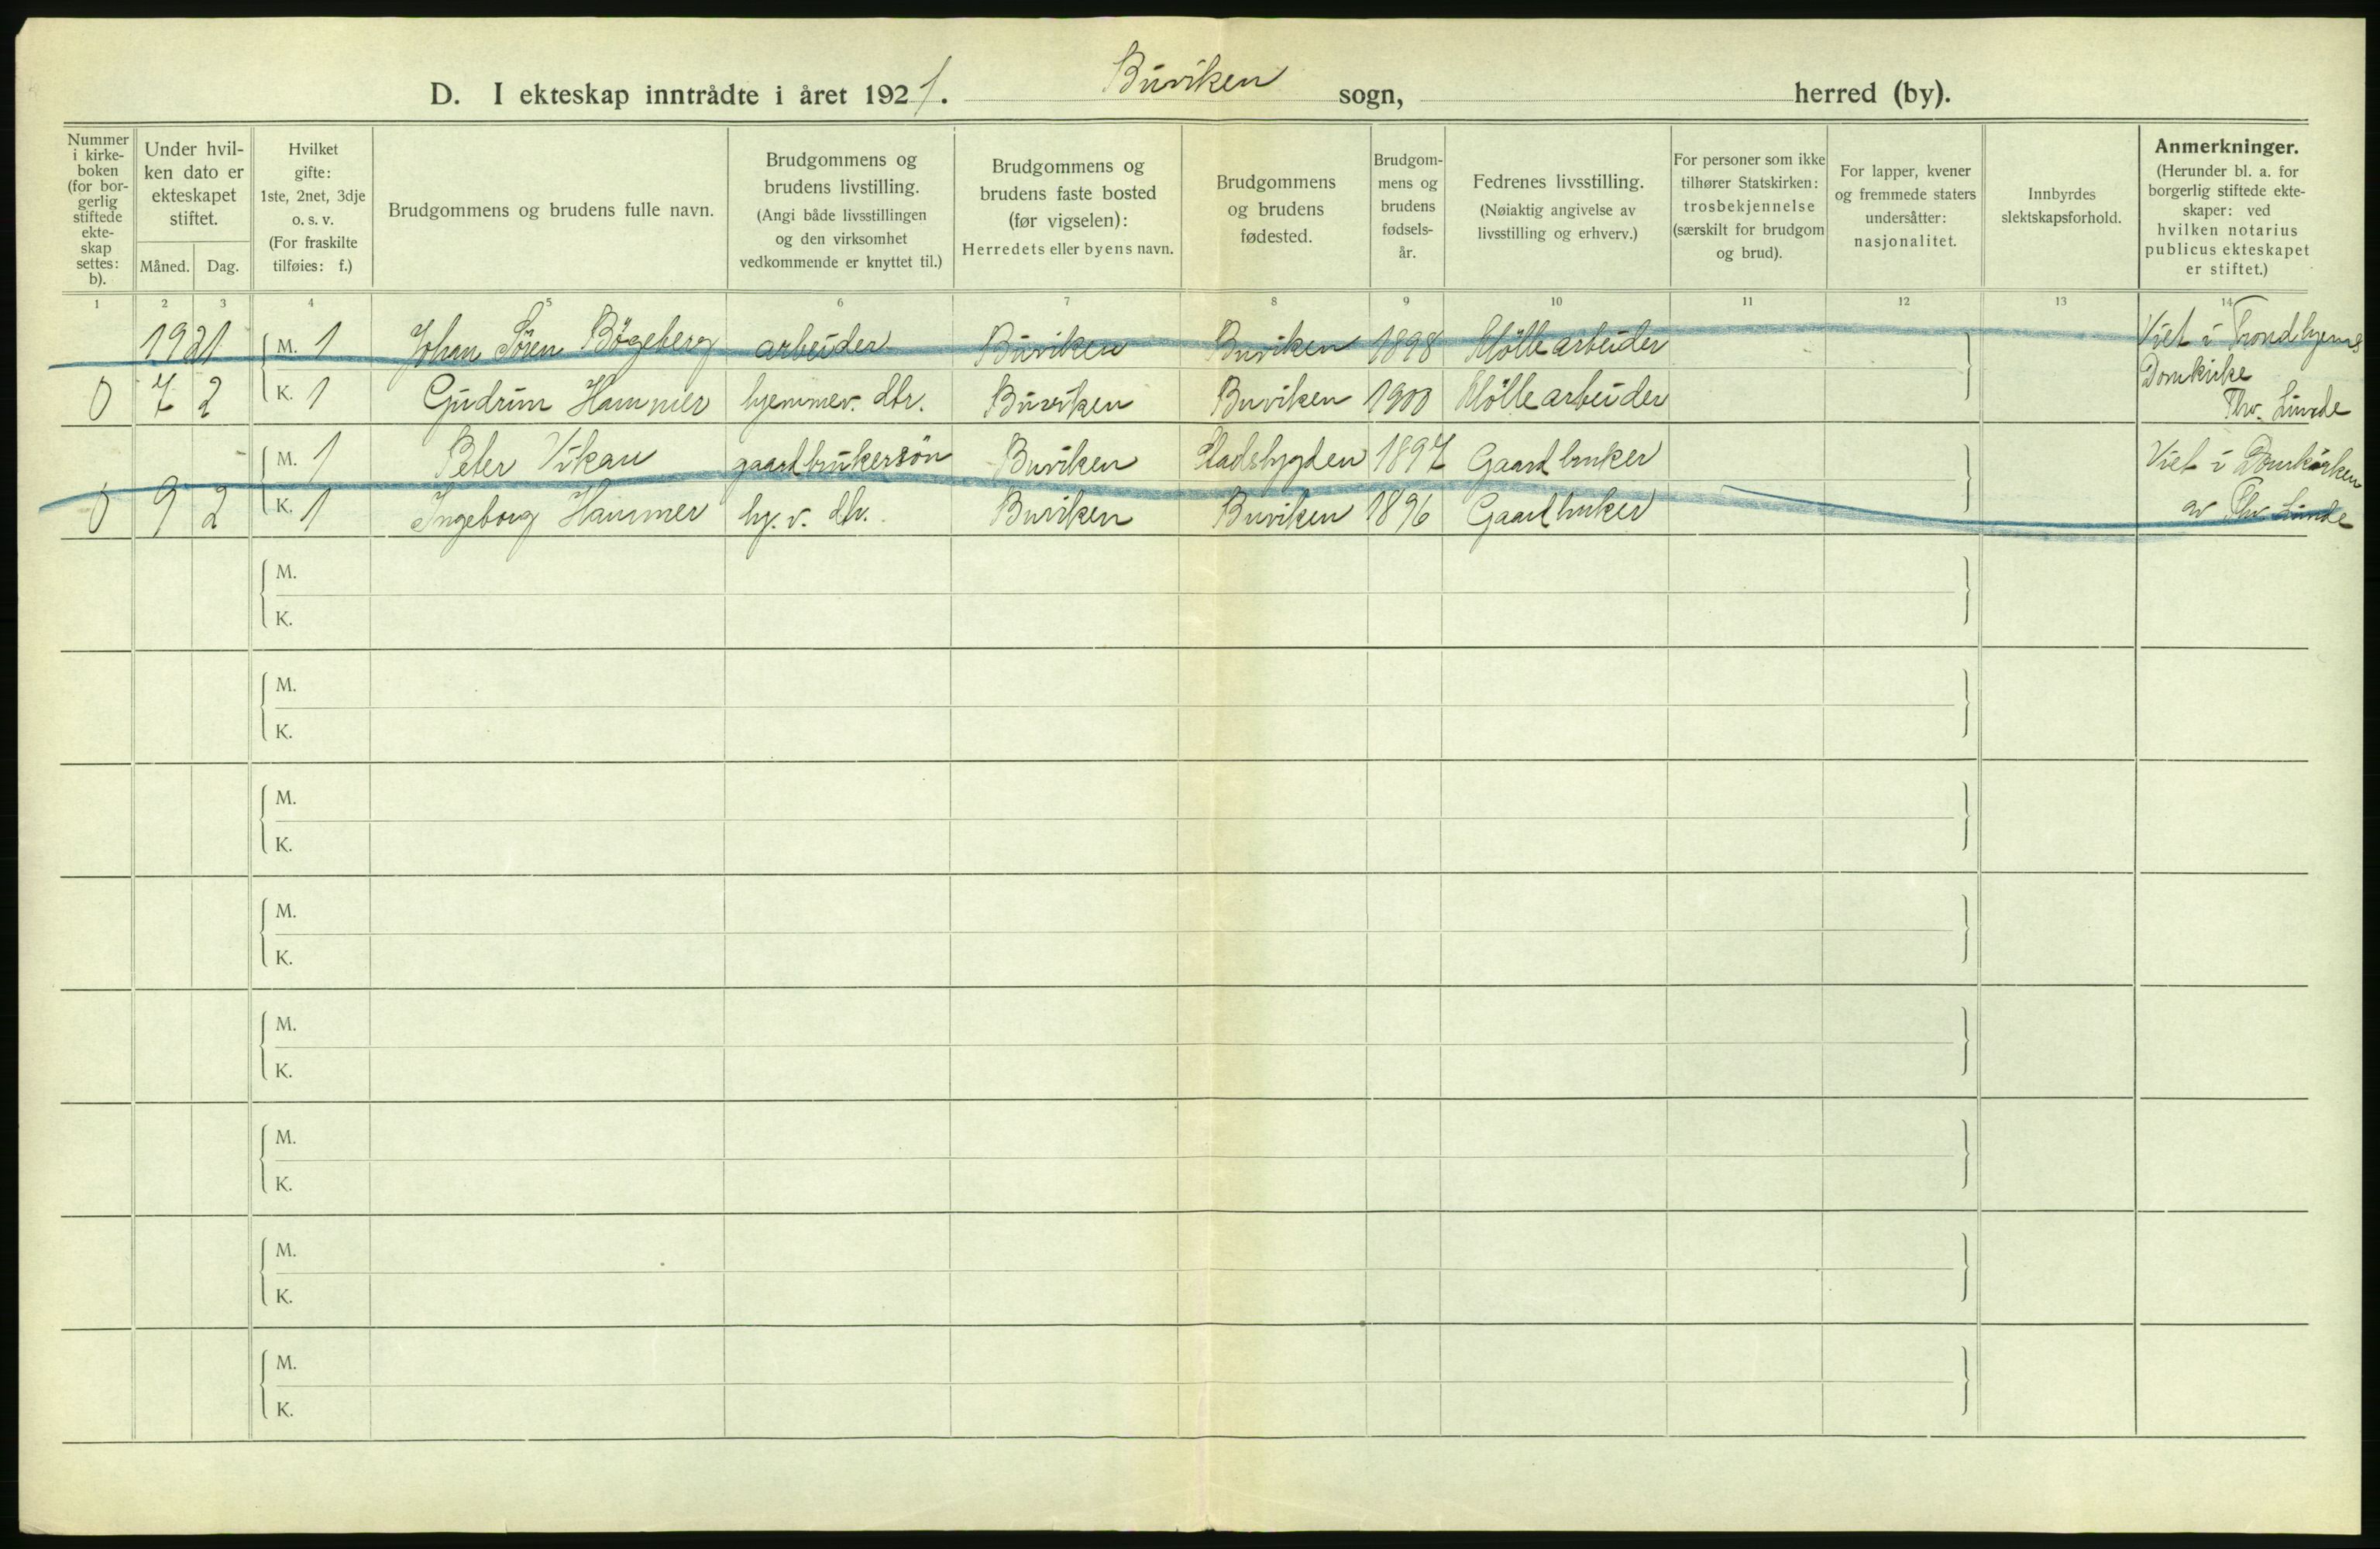 D. I ekteskap inntrådte i året 1921. Buviken sogn, herred (by).
Nummer i kirkeboken (for borgerlig stiftede ekteskap settes: b).
Under hvilken dato er ekteskapet stiftet.
Måned. Dag.
Hvilket gifte: 1ste, 2net, 3dje o. s. v. (For fraskilte tilføies: f.)
Brudgommens og brudens fulle navn.
Brudgommens og brudens livstilling. (Angi både livsstillingen og den virksomhet vedkommende er knyttet til.)
Brudgommens og brudens faste bosted (før vigselen): Herredets eller byens navn.
Brudgommens og brudens fødested.
Brudgommens og brudens fødselsår.
Fedrenes livsstilling. (Nøiaktig angivelse av livsstilling og erhverv.)
For personer som ikke tilhører Statskirken: trosbekjennelse (særskilt for brudgom og brud).
For lapper, kvener og fremmede staters undersåtter: nasjonalitet.
Innbyrdes slektskapsforhold.
Anmerkninger. (Herunder bl. a. for borgerlig stiftede ekteskaper: ved hvilken notarius publicus ekteskapet er stiftet.)
1 2 3 4 5 6 7 8 9 10 11 12 13 14
1921 M. 1 Johan Sören Bögeberg arbeider Buviken Buviken 1898 Möllearbeider Viet i Trondhjems
Domkirke
0 7 2 K. 1 Gudrun Hammer hjemmev. dtr. Buviken Buviken 1900 Möllearbeider Thv. Lunde
M. 1 Peter Vikan gaardbrukersön Buviken Stadsbygden 1897 Gaardbruker Viet i Domkirken
0 9 2 K. 1 Ingeborg Hammer hj. v. dtr. Buviken Buviken 1896 Gaardbruker av Thv. Lunde
M.
K.
M.
K.
M.
K.
M.
K.
M.
K.
M.
K.
M.
K.
M.
K.